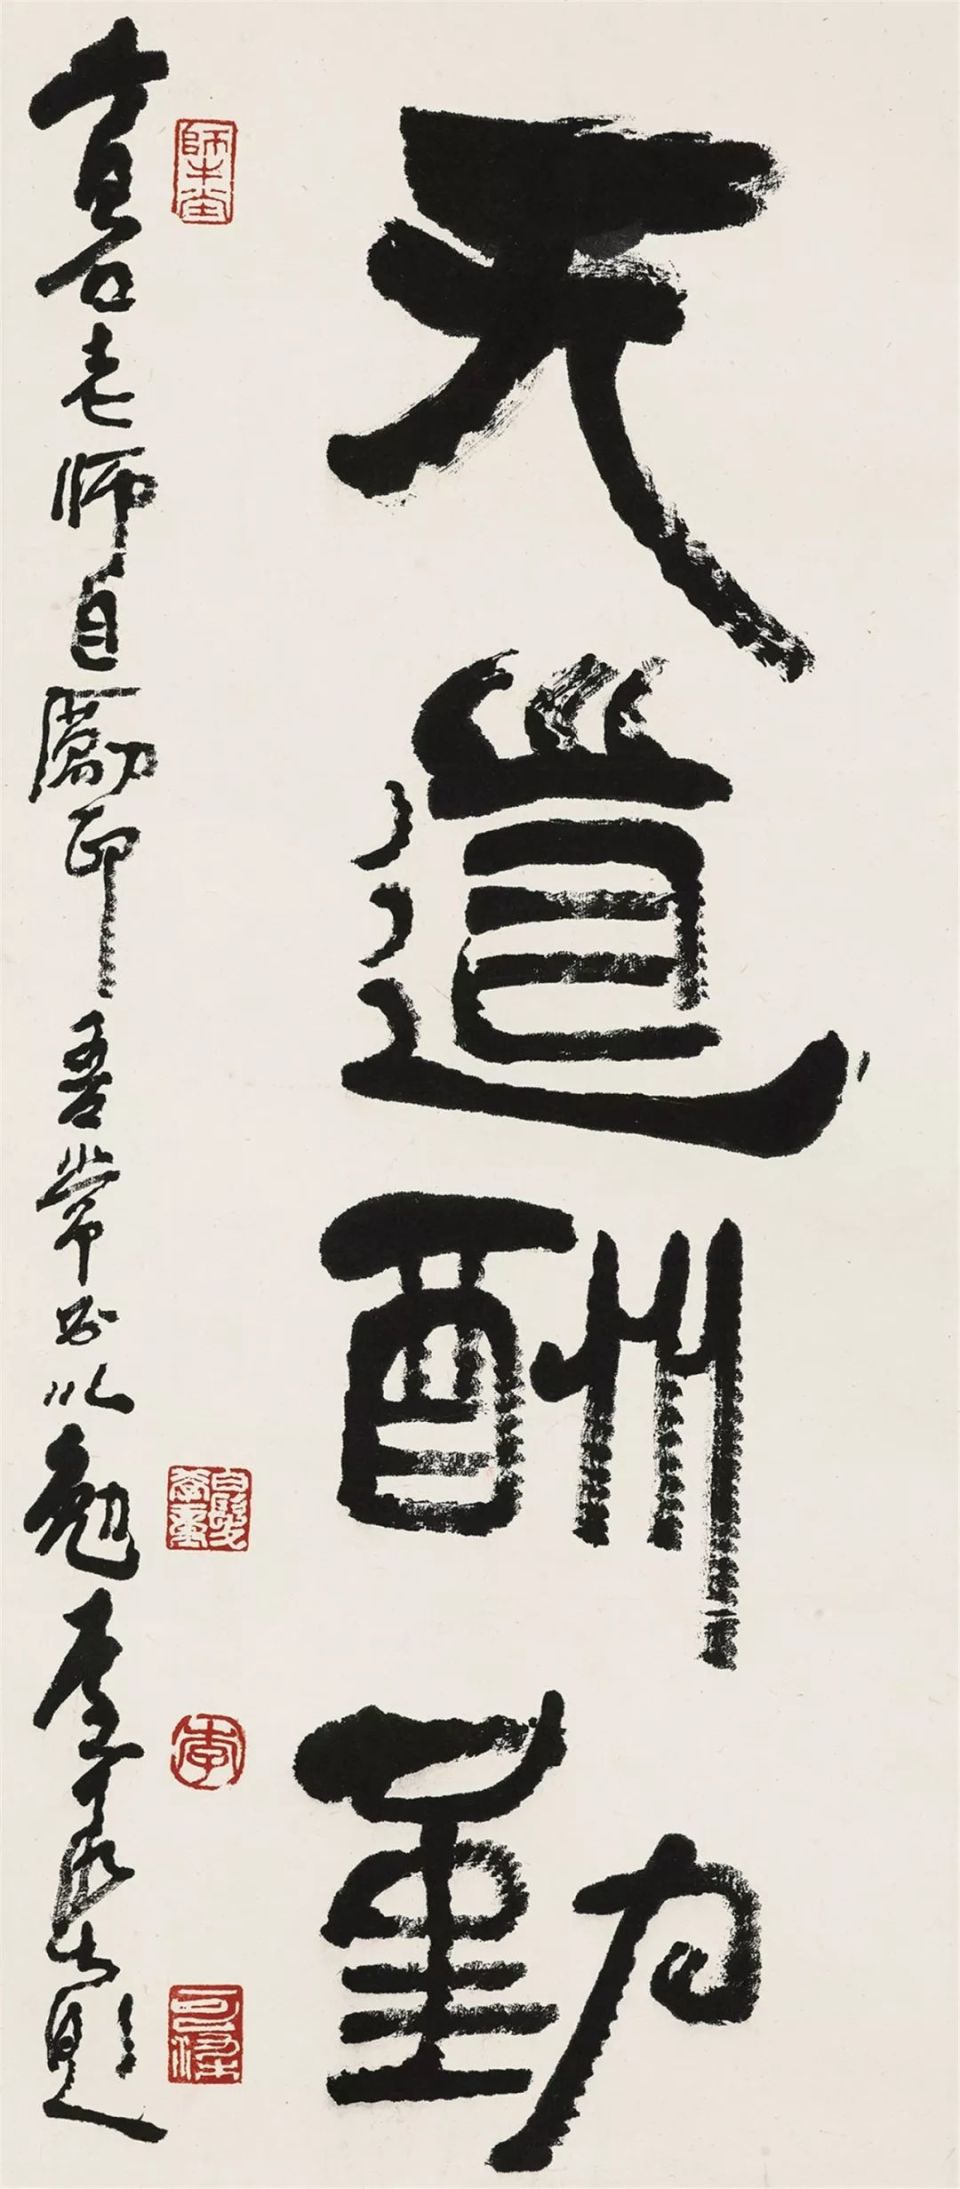 天道酬勤
白石老师自勵印吾常书以勉李可染题
師牛堂
白髮學童
李
可染